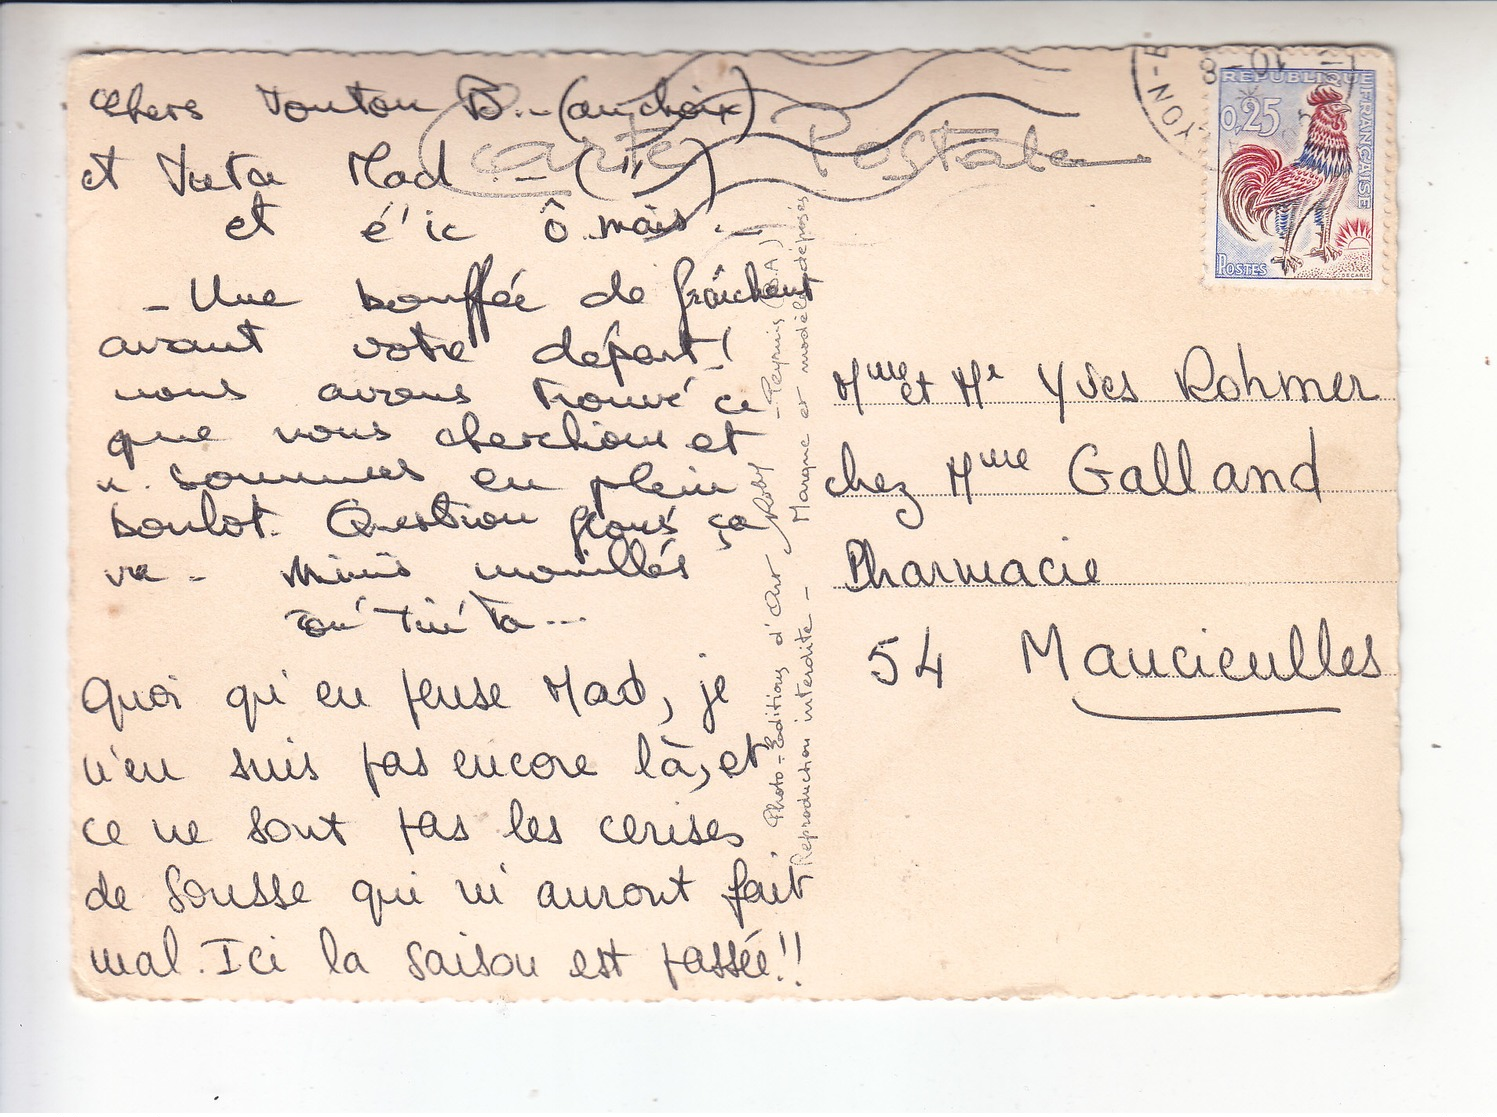 chers Tonton B.. (au choix)
et Tata Mad .. – (")
et é'ic ô mais. –
– Une bouffée de fraîcheur
avant votre départ!
nous avons trouvé ce
que nous cherchions et
n. sommes en plein
boulot. Question ça
va – mouillés
Quoi qu'en pense Mad, je
n'en suis pas encore là, et
ce ne sont pas les cerises
de Sousse qui m'auront fait
mal. Ici la saison est passée!!
Carte Postale
Photo-Editions d'Art Roby – Peyrins
Reproduction interdite – Marque et modèle déposés
REPUBLIQUE FRANÇAISE
0,25
POSTES
Mme et Mr Yves Rohmer
chez Mme Galland
Pharmacie
54 Mancieulles